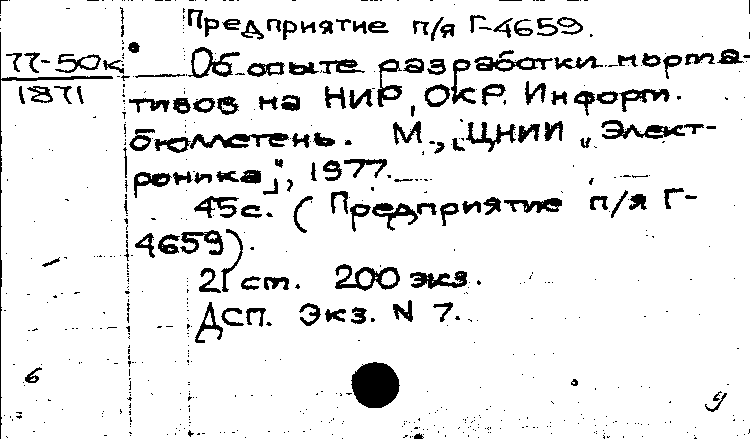 Предприятие п/я Г-4659.
77-50к Об опыте разработки норма-
1871 тивов на НИР, ОКР. Информ.
бюллетень. М., [ЦНИИ „Элект-
роника]", 1977.
45с. (Предприятие п/я Г-
4659).
21 ст. 200 экз.
ДСП. Экз. N 7.
б
у